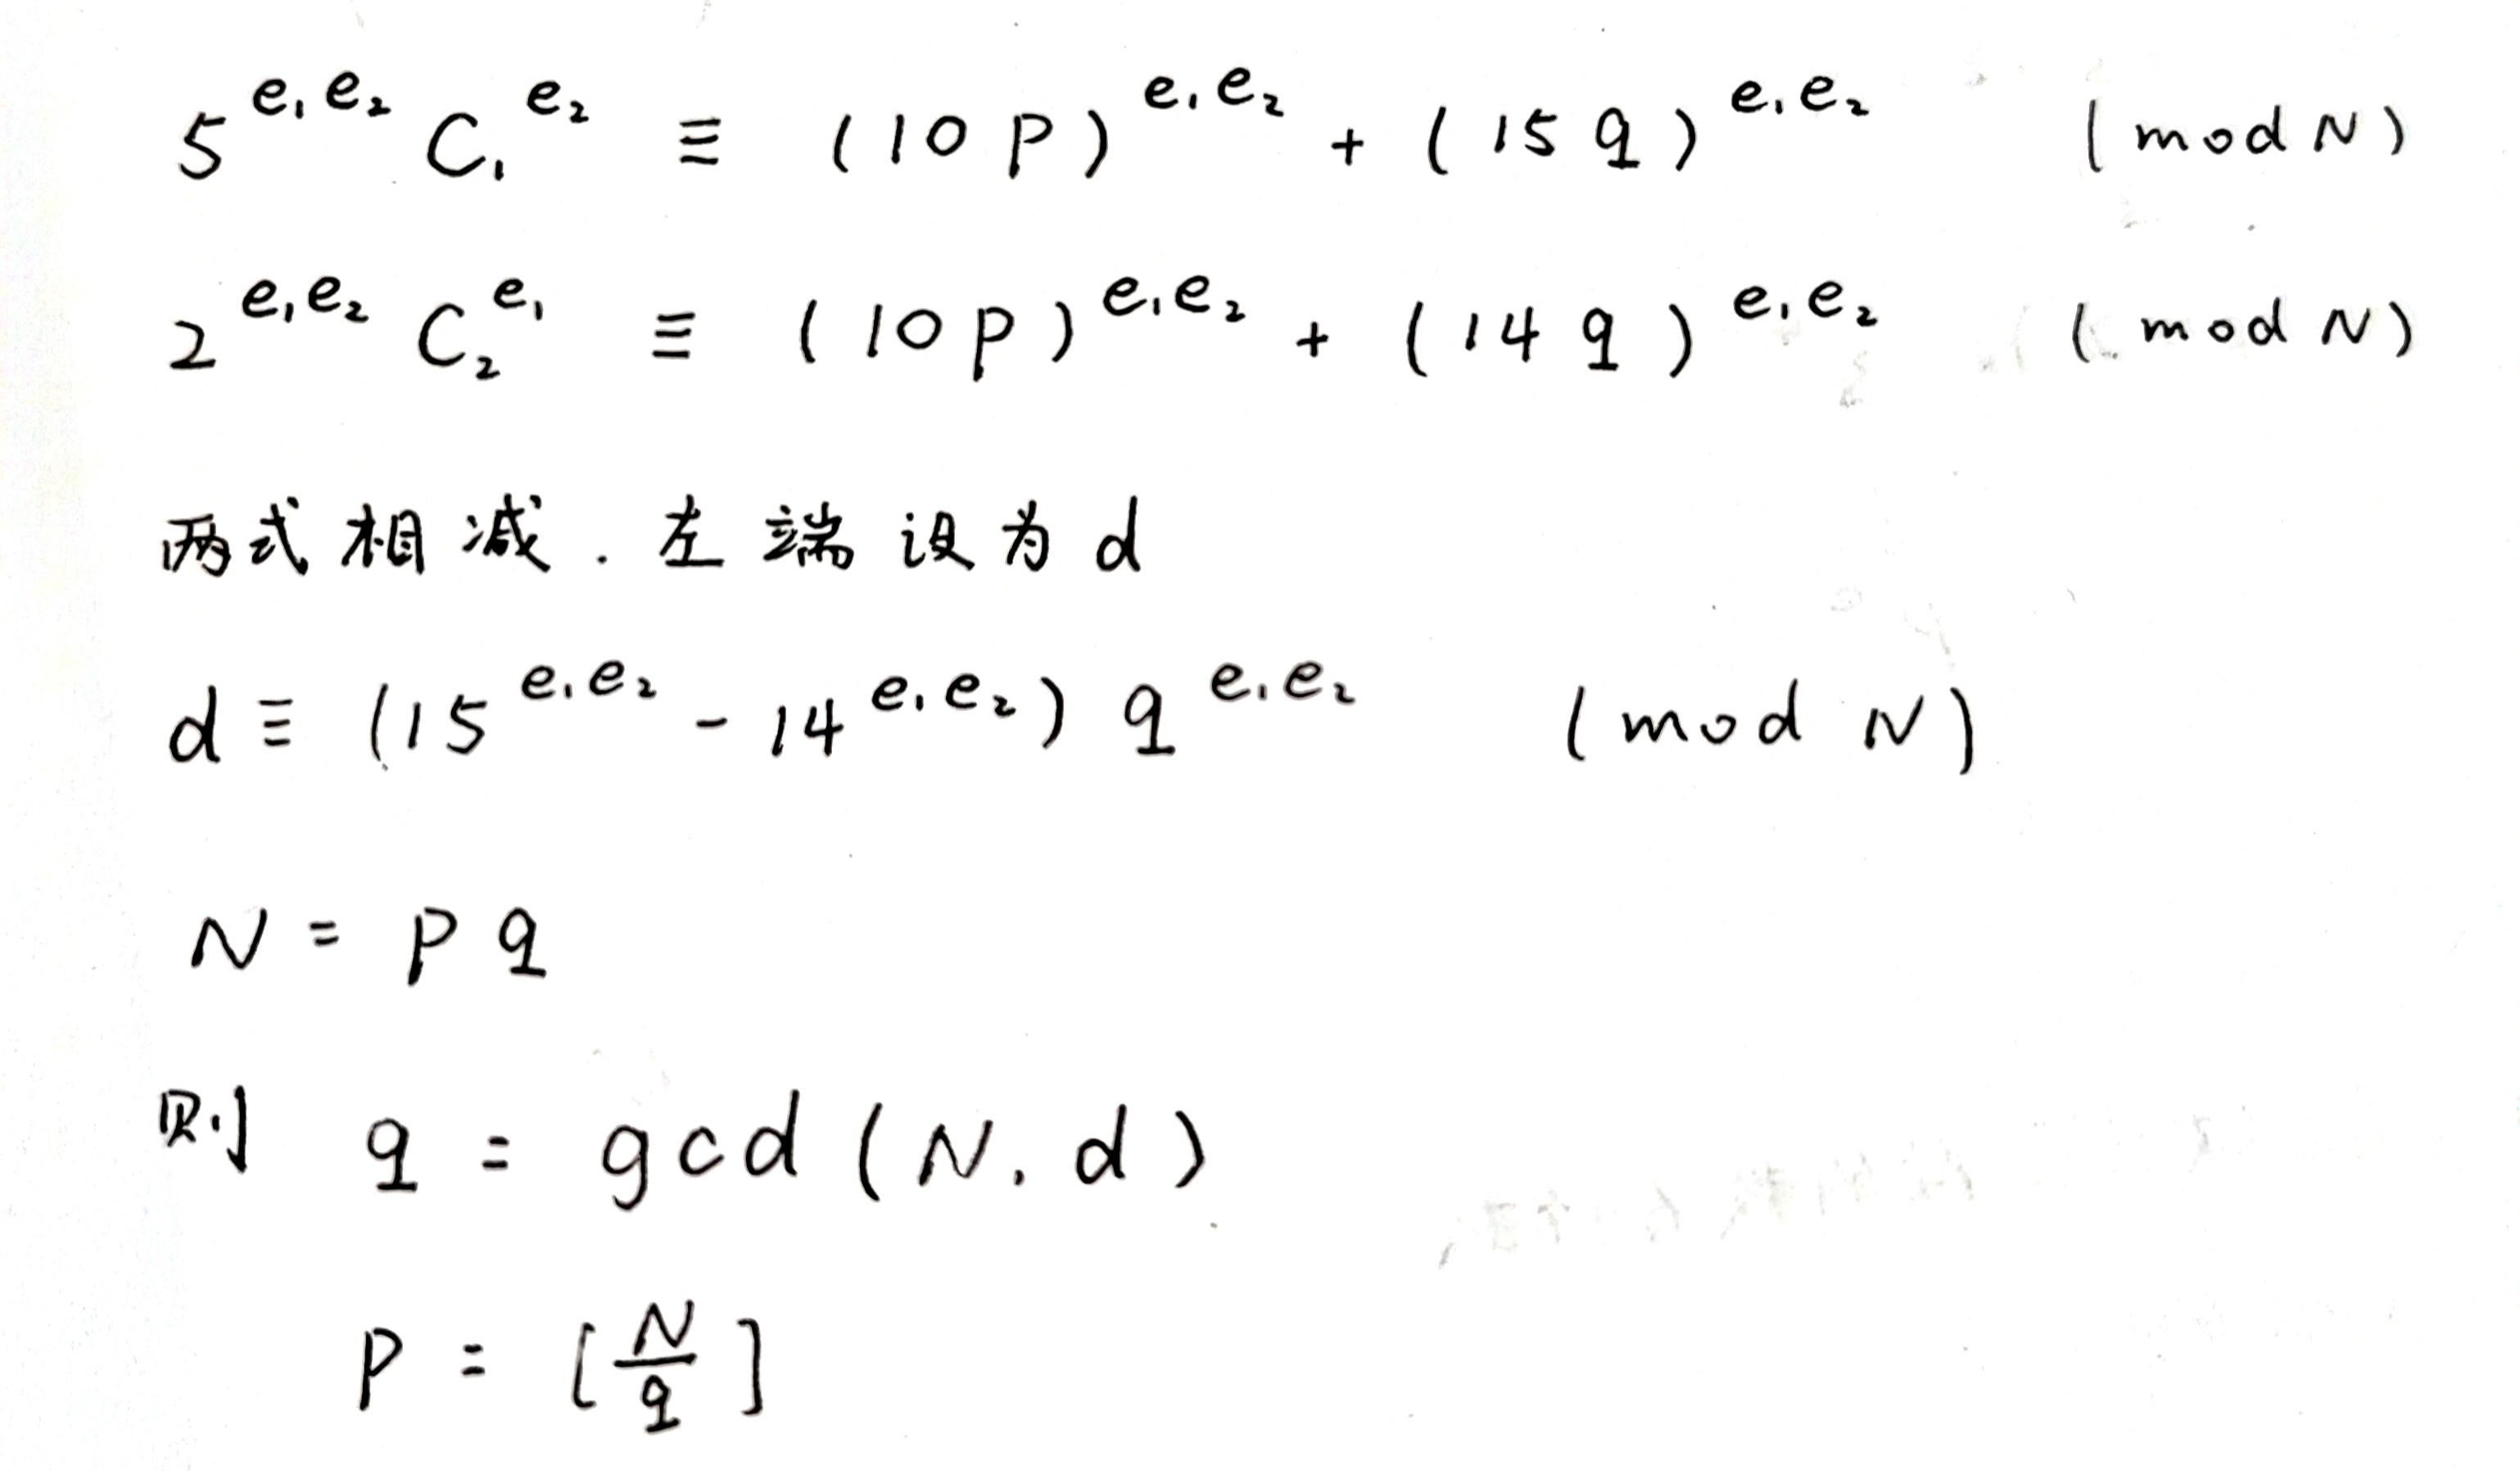 5^{e₁e₂} C₁^{e₂} ≡ (10p)^{e₁e₂} + (15q)^{e₁e₂} (mod N)
2^{e₁e₂} C₂^{e₁} ≡ (10p)^{e₁e₂} + (14q)^{e₁e₂} (mod N)
两式相减. 左端设为d
d ≡ (15^{e₁e₂} - 14^{e₁e₂}) q^{e₁e₂} (mod N)
N = pq
则 q = gcd(N, d)
p = [N/q]